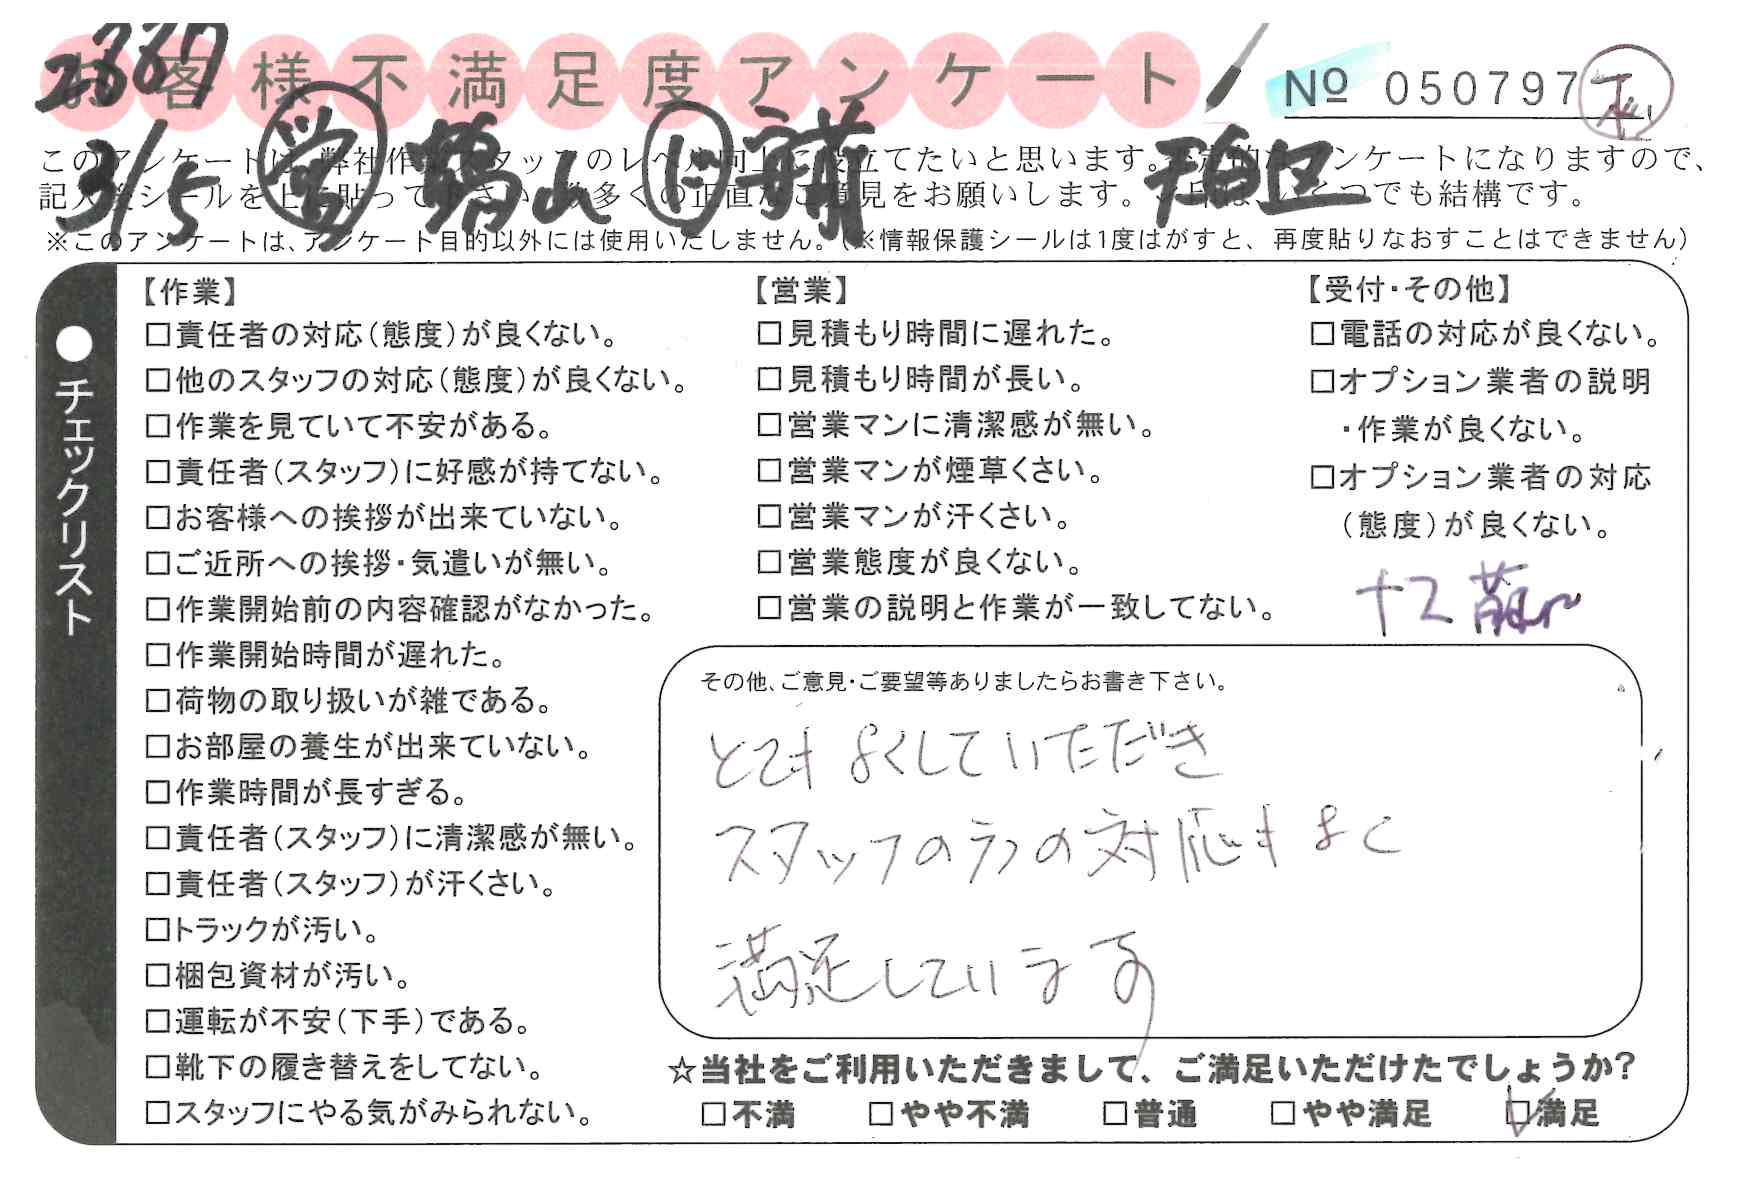 お客様不満足度アンケート
№ 050797
2337
3/5 営 鶴山 リ 斎藤
このアンケートは、弊社作業スタッフのレベル向上に役立てたいと思います。不定的なアンケートになりますので、
記入後シールを上に貼って下さい。数多くの正直なご意見をお願いします。レ印は、いくつでも結構です。
※このアンケートは、アンケート目的以外には使用いたしません。(※情報保護シールは1度はがすと、再度貼りなおすことはできません)
●チェックリスト
【作業】
□責任者の対応(態度)が良くない。
□他のスタッフの対応(態度)が良くない。
□作業を見ていて不安がある。
□責任者(スタッフ)に好感が持てない。
□お客様への挨拶が出来ていない。
□ご近所への挨拶・気遣いが無い。
□作業開始前の内容確認がなかった。
□作業開始時間が遅れた。
□荷物の取り扱いが雑である。
□お部屋の養生が出来ていない。
□作業時間が長すぎる。
□責任者(スタッフ)に清潔感が無い。
□責任者(スタッフ)が汗くさい。
□トラックが汚い。
□梱包資材が汚い。
□運転が不安(下手)である。
□靴下の履き替えをしてない。
□スタッフにやる気がみられない。
【営業】
□見積もり時間に遅れた。
□見積もり時間が長い。
□営業マンに清潔感が無い。
□営業マンが煙草くさい。
□営業マンが汗くさい。
□営業態度が良くない。
□営業の説明と作業が一致してない。
【受付・その他】
□電話の対応が良くない。
□オプション業者の説明
・作業が良くない。
□オプション業者の対応
(態度)が良くない。
その他、ご意見・ご要望等ありましたらお書き下さい。
とてもよくしていただき
スタッフの方の対応もよく
満足しています
☆当社をご利用いただきまして、ご満足いただけたでしょうか?
□不満 □やや不満 □普通 □やや満足 ☑満足